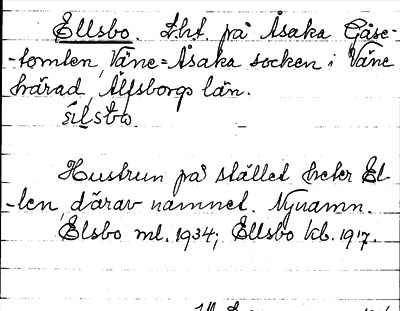 Ellsbo. Lht. på Åsaka Gåse-
-tomten, Väne-Åsaka socken i Väne
härad, Älfsborgs län.
Hustrun på stället heter El-
-len, därav namnet. Nynamn.
Elsbo ml. 1934; Ellsbo kb. 1917.